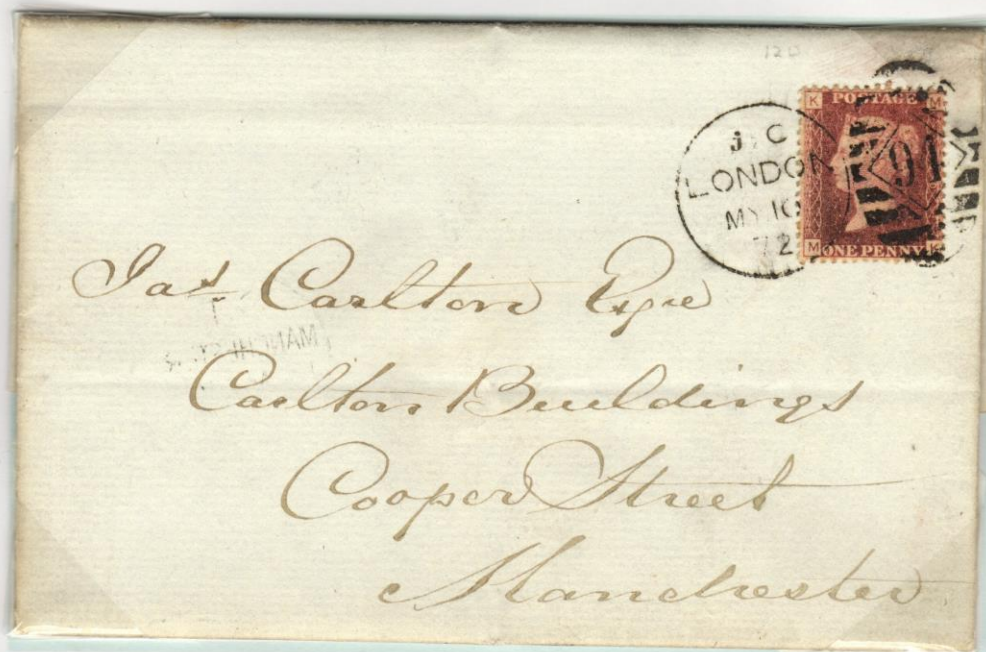 120
K POSTAGE M
LONDON
MY 10
72
91
M ONE PENNY K
Jas. Carlton Esqre
Carlton Buildings
Cooper Street
Manchester